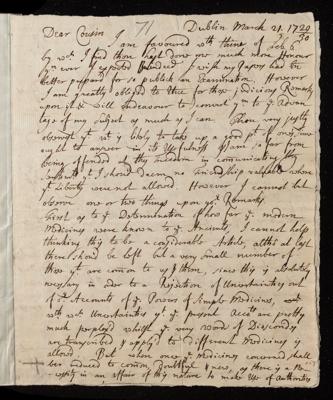 71
Dublin March 21. 1729/30
Dear Cousin
I am favoured wth thine of Feb 6
by wch I find thou hast done me much more Honour
yn ever I expected I wish my Papers had been
better prepar'd for a publick an Examination. However
I am greatly obliged to thee for thy judicious Remarks
upon it & will Endeavour to convert ym to ye Advan
tage of my subject as much as I can. Thou very justly
observest yt wt is likely to take up a good pt of ones time
ought to answer in its Usefulness & I am so far from
being offended at thy freedom in communicating thy
sentiments yt I should Deem no friendship valuable where
yt Liberty were not allowed. However I cannot but
observe one or two things upon yr Remarks.
First as to ye Determination of how far ye modern
Medicines were known to ye Ancients, I cannot help
thinking this to be a considerable Article, altho' at last
there should be left but a very small number of
those yt are common to us & them, since this is absolutely
necessary in order to a Rejection of Uncertaintys out
of ye Accounts of ye Powers of Simple Medicines, wth
wch Uncertaintys ye present Accots are pretty
much perplex'd whilst ye very words of Dioscorides
are transcribed & apply'd to different Medicines is
allowed. But when once ye Medicines concerned shall
be reduced to common, doubtful & new, as there is a Ne
cessity in an affair of this nature to make Use of Authorities